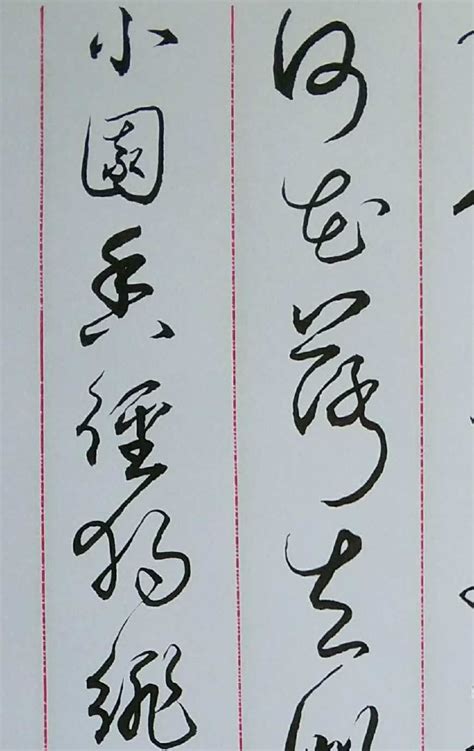 何花落去
小園香徑獨徘